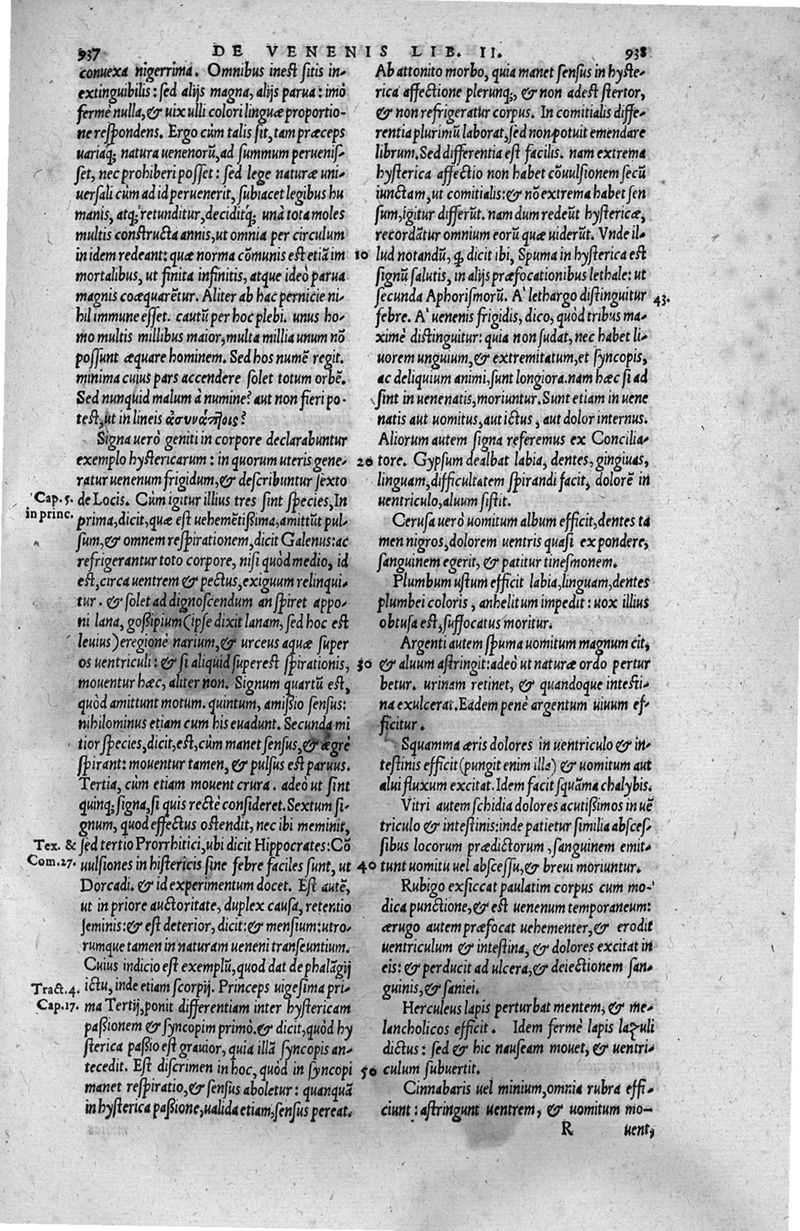 937 DE VENENIS LIB. II. 938
conuexa nigerrima. Omnibus inest sitis in-
extinguibilis: sed alijs magna, alijs parua: imò
fermè nulla, & uix ulli colori linguæ proportio-
ne respondens. Ergo cùm talis sit, tam præceps
uariaq; natura uenenorũ, ad summum peruenis-
set, nec prohiberi posset: sed lege naturæ uni-
uersali cùm ad id peruenerit, subiacet legibus hu
manis, atq; retunditur, deciditq; unà tota moles
multis constructa annis, ut omnia per circulum
in idem redeant: quæ norma cõmunis est etiã im
mortalibus, ut finita infinitis, atque ideò parua
magnis coæquarẽtur. Aliter ab hac pernicie ni-
hil immune esset. cautũ per hoc plebi. unus ho-
mo multis millibus maior, multa millia unum nõ
possunt æquare hominem. Sed hos numẽ regit.
minima cuius pars accendere solet totum orbẽ.
Sed nunquid malum à numine? aut non fieri po-
test, ut in lineis
Signa uerò geniti in corpore declarabuntur
exemplo hystericarum: in quorum uteris gene-
ratur uenenum frigidum, & describuntur sexto
Cap. 5. de Locis. Cùm igitur illius tres sint species, In
in princ. prima, dicit, quæ est uehemẽtißima, amittũt pul-
sum, & omnem respirationem, dicit Galenus: ac
refrigerantur toto corpore, nisi quòd medio, id
est, circa uentrem & pectus, exiguum relinqui-
tur. & solet ad dignoscendum an spiret appo-
ni lana, goßipium (ipse dixit lanam, sed hoc est
leuius) è regione narium, & urceus aquæ super
os uentriculi: & si aliquid superest spirationis,
mouentur hæc, aliter non. Signum quartũ est,
quòd amittunt motum. quintum, amißio sensus:
nihilominus etiam cum his euadunt. Secunda mi
tior species, dicit, est, cùm manet sensus, & ægrè
spirant: mouentur tamen, & pulsus est paruus.
Tertia, cùm etiam mouent crura. adeò ut sint
quinq; signa, si quis rectè consideret. Sextum si-
gnum, quod effectus ostendit, nec ibi meminit,
Tex. & sed tertio Prorrhitici, ubi dicit Hippocrates: Cõ
Com. 27. uulsiones in histericis sine febre faciles sunt, ut
Dorcadi. & id experimentum docet. Est autẽ,
ut in priore auctoritate, duplex causa, retentio
seminis: & est deterior, dicit: & mensium: utro-
rumque tamen in naturam ueneni transeuntium.
Cuius indicio est exemplũ, quod dat de phalãgij
Tract. 4. ictu, inde etiam scorpij. Princeps uigesima pri-
Cap. 17. ma Tertij, ponit differentiam inter hystericam
paßionem & syncopim primò. & dicit, quòd hy
sterica paßio est grauior, quia illã syncopis an-
tecedit. Est discrimen in hoc, quòd in syncopi
manet respiratio, & sensus aboletur: quanquã
in hysterica paßione, ualida etiam, sensus pereat.
Ab attonito morbo, quia manet sensus in hyste-
rica affectione plerunq;, & non adest stertor,
& non refrigeratur corpus. In comitialis diffe-
rentia plurimũ laborat, sed non potuit emendare
librum. Sed differentia est facilis. nam extrema
hysterica affectio non habet cõuulsionem secũ
iunctam, ut comitialis: & nõ extrema habet sen
sum, igitur differũt. nam dum redeũt hystericæ,
recordãtur omnium eorũ quæ uiderũt. Vnde il-
10 lud notandũ, q dicit ibi, Spuma in hysterica est
signũ salutis, in alijs præfocationibus lethale: ut
secunda Aphorismorũ. A' lethargo distinguitur 43.
febre. A' uenenis frigidis, dico, quòd tribus ma-
ximè distinguitur: quia non sudat, nec habet li-
uorem unguium, & extremitatum, et syncopis,
ac deliquium animi, sunt longiora. nam hæc si ad
sint in uenenatis, moriuntur. Sunt etiam in uene
natis aut uomitus, aut ictus, aut dolor internus.
Aliorum autem signa referemus ex Concilia-
20 tore. Gypsum dealbat labia, dentes, gingiuas,
linguam, difficultatem spirandi facit, dolorẽ in
uentriculo, aluum sistit.
Cerusa uerò uomitum album efficit, dentes ta
men nigros, dolorem uentris quasi ex pondere,
sanguinem egerit, & patitur tinesmonem.
Plumbum ustum efficit labia, linguam, dentes
plumbei coloris, anhelitum impedit: uox illius
obtusa est, suffocatus moritur.
Argenti autem spuma uomitum magnum cit,
30 & aluum astringit: adeò ut naturæ ordo pertur
betur. urinam retinet, & quandoque intesti-
na exulcerat. Eadem penè argentum uiuum ef-
ficitur.
Squamma æris dolores in uentriculo & in-
testinis efficit (pungit enim illa) & uomitum aut
alui fluxum excitat. Idem facit squãma chalybis.
Vitri autem schidia dolores acutißimos in uẽ
triculo & intestinis: inde patietur similia absces-
sibus locorum prædictorum, sanguinem emit-
40 tunt uomitu uel abscessu, & breui moriuntur.
Rubigo exsiccat paulatim corpus cum mo-
dica punctione, & est uenenum temporaneum:
ærugo autem præfocat uehementer, & erodit
uentriculum & intestina, & dolores excitat in
eis: & perducit ad ulcera, & deiectionem san-
guinis, & saniei.
Herculeus lapis perturbat mentem, & me-
lancholicos efficit. Idem fermè lapis lazuli
dictus: sed & hic nauseam mouet, & uentri-
50 culum subuertit.
Cinnabaris uel minium, omnia rubra effi-
ciunt: astringunt uentrem, & uomitum mo-
R uent,